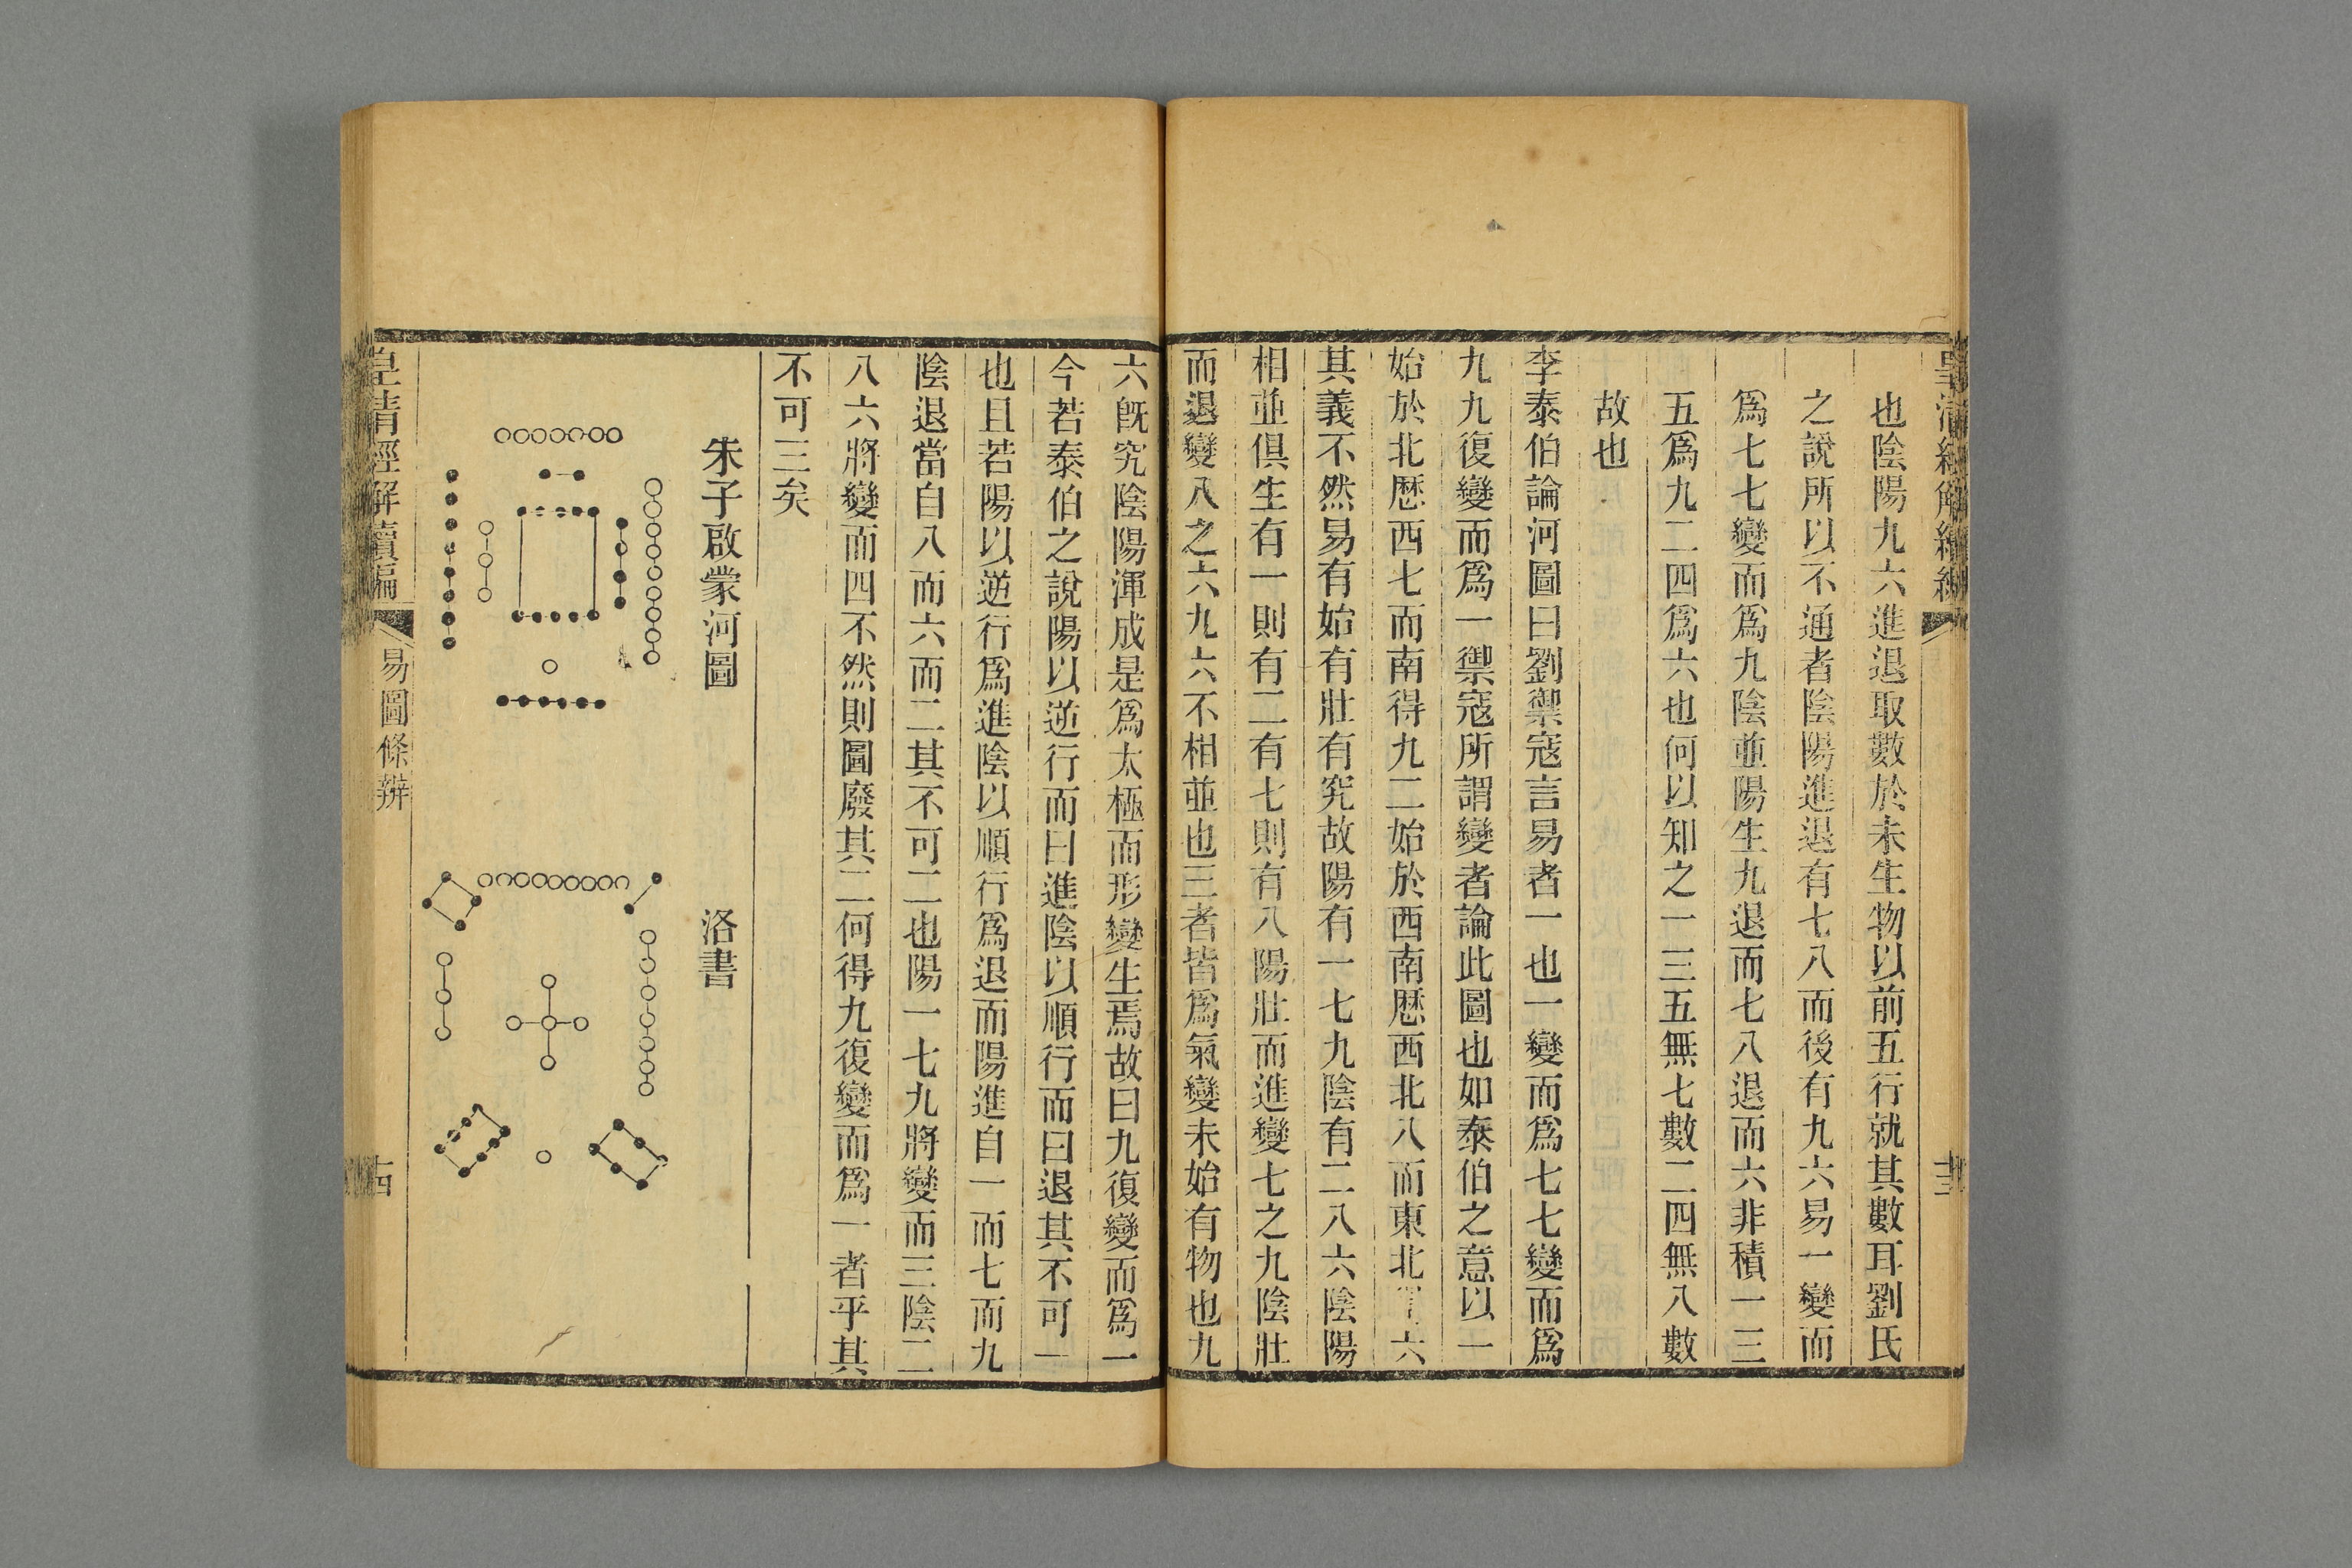 也陰陽九六進退取數於未生物以前五行就其數耳劉氏
之說所以不通者陰陽進退有七八而後有九六易一變而
爲七七變而爲九陰並陽生九退而七八退而六非積一三
五爲九二四爲六也何以知之一三五無七數二四無八數
故也
李泰伯論河圖曰劉禦寇言易者一也一變而爲七七變而爲
九九復變而爲一禦寇所謂變者論此圖也如泰伯之意以一
始於北歷西七而南得九二始於西南歷西北八而東北六
其義不然易有始有壯有究故陽有一七九陰有二八六陰陽
相並俱生有一則有二有七則有八陽壯而進變七之九陰壯
而退變八之六九六不相並也三者皆爲氣變未始有物也九
六旣究陰陽渾成是爲太極而形變生焉故曰九復變而爲一
今若泰伯之說陽以逆行而曰進陰以順行而曰退其不可一
也且若陽以逆行爲進陰以順行爲退而陽進自一而七而九
陰退當自八而六而二其不可二也陽一七九將變而三陰二
八六將變而四不然則圖廢其二何得九復變而爲一者乎其
不可三矣
朱子啟蒙河圖
洛書
皇清經解續編
易圖條辨
十四